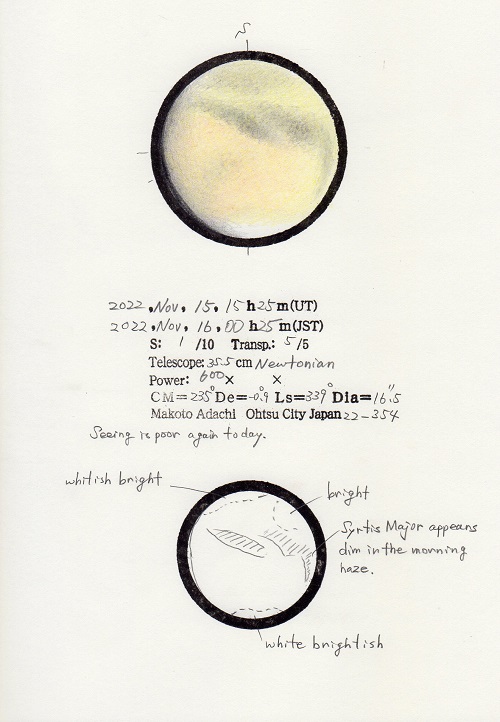 S
2022, Nov, 15, 15 h 25 m (UT)
2022, Nov, 16, 00 h 25 m (JST)
S: 1 /10 Transp.: 5 /5
Telescope: 35.5 cm Newtonian
Power: 600 × ×
CM=235° De=-0.9° Ls=339° Dia=16.5"
Makoto Adachi Ohtsu City Japan 22-354
Seeing is poor again today.
whitish bright
bright
Syrtis Major appears
dim in the morning
haze.
white brightish